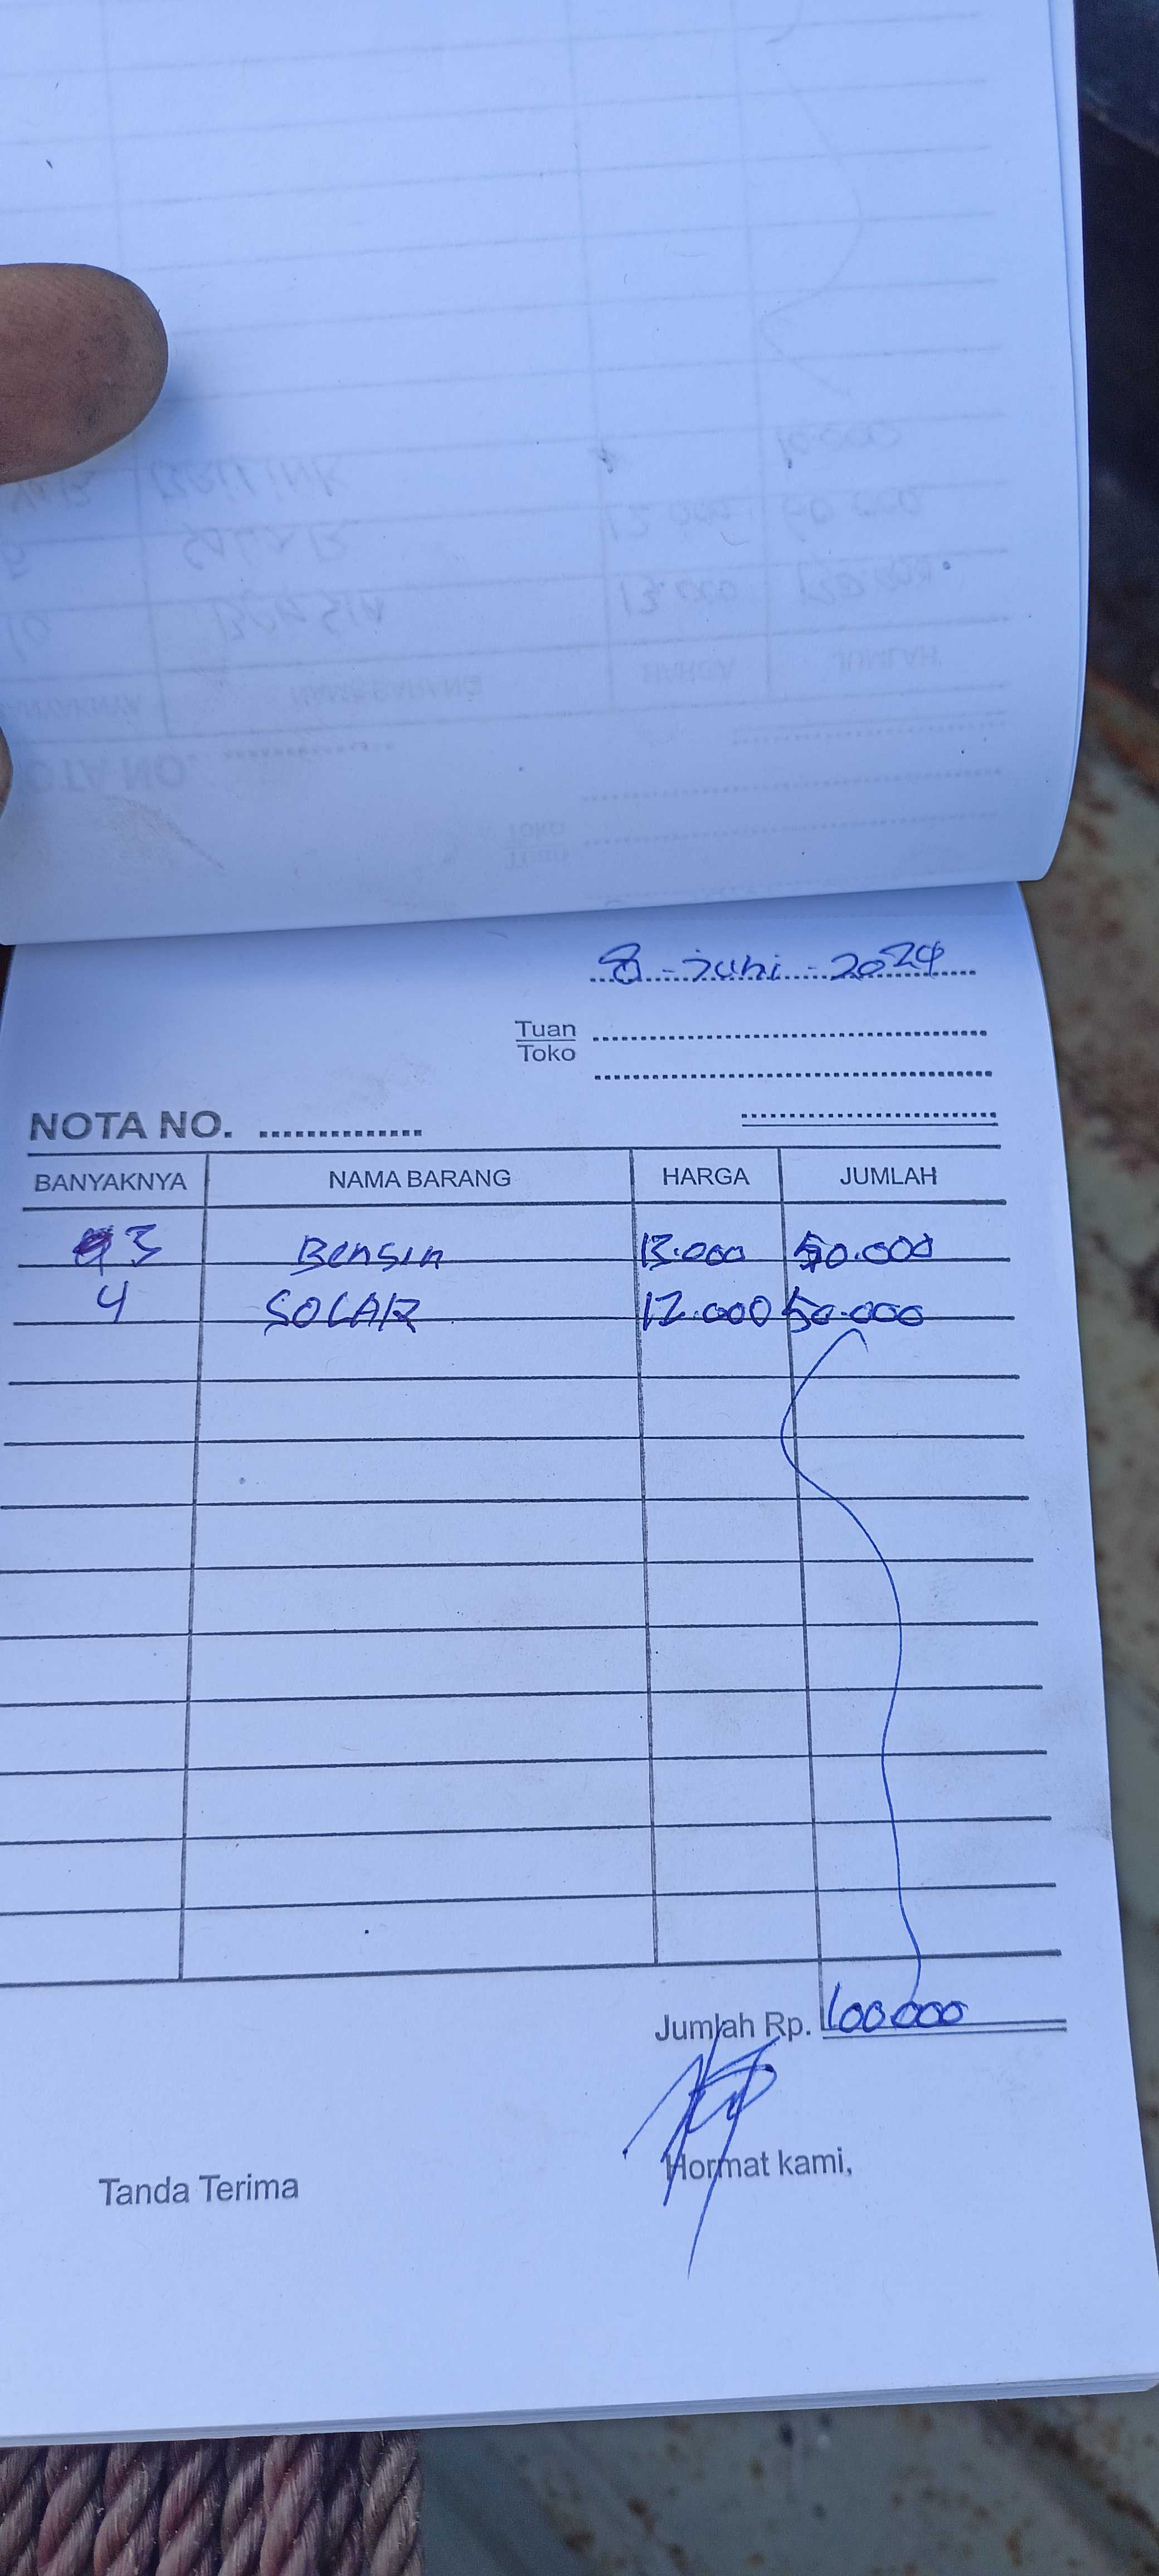 8 - juni - 2024
Tuan
Toko
NOTA NO. ..............
BANYAKNYA NAMA BARANG HARGA JUMLAH
3 Bensin 13.000 50.000
4 SOLAR 12.000 50.000
Jumlah Rp. 100.000
Tanda Terima Hormat kami,